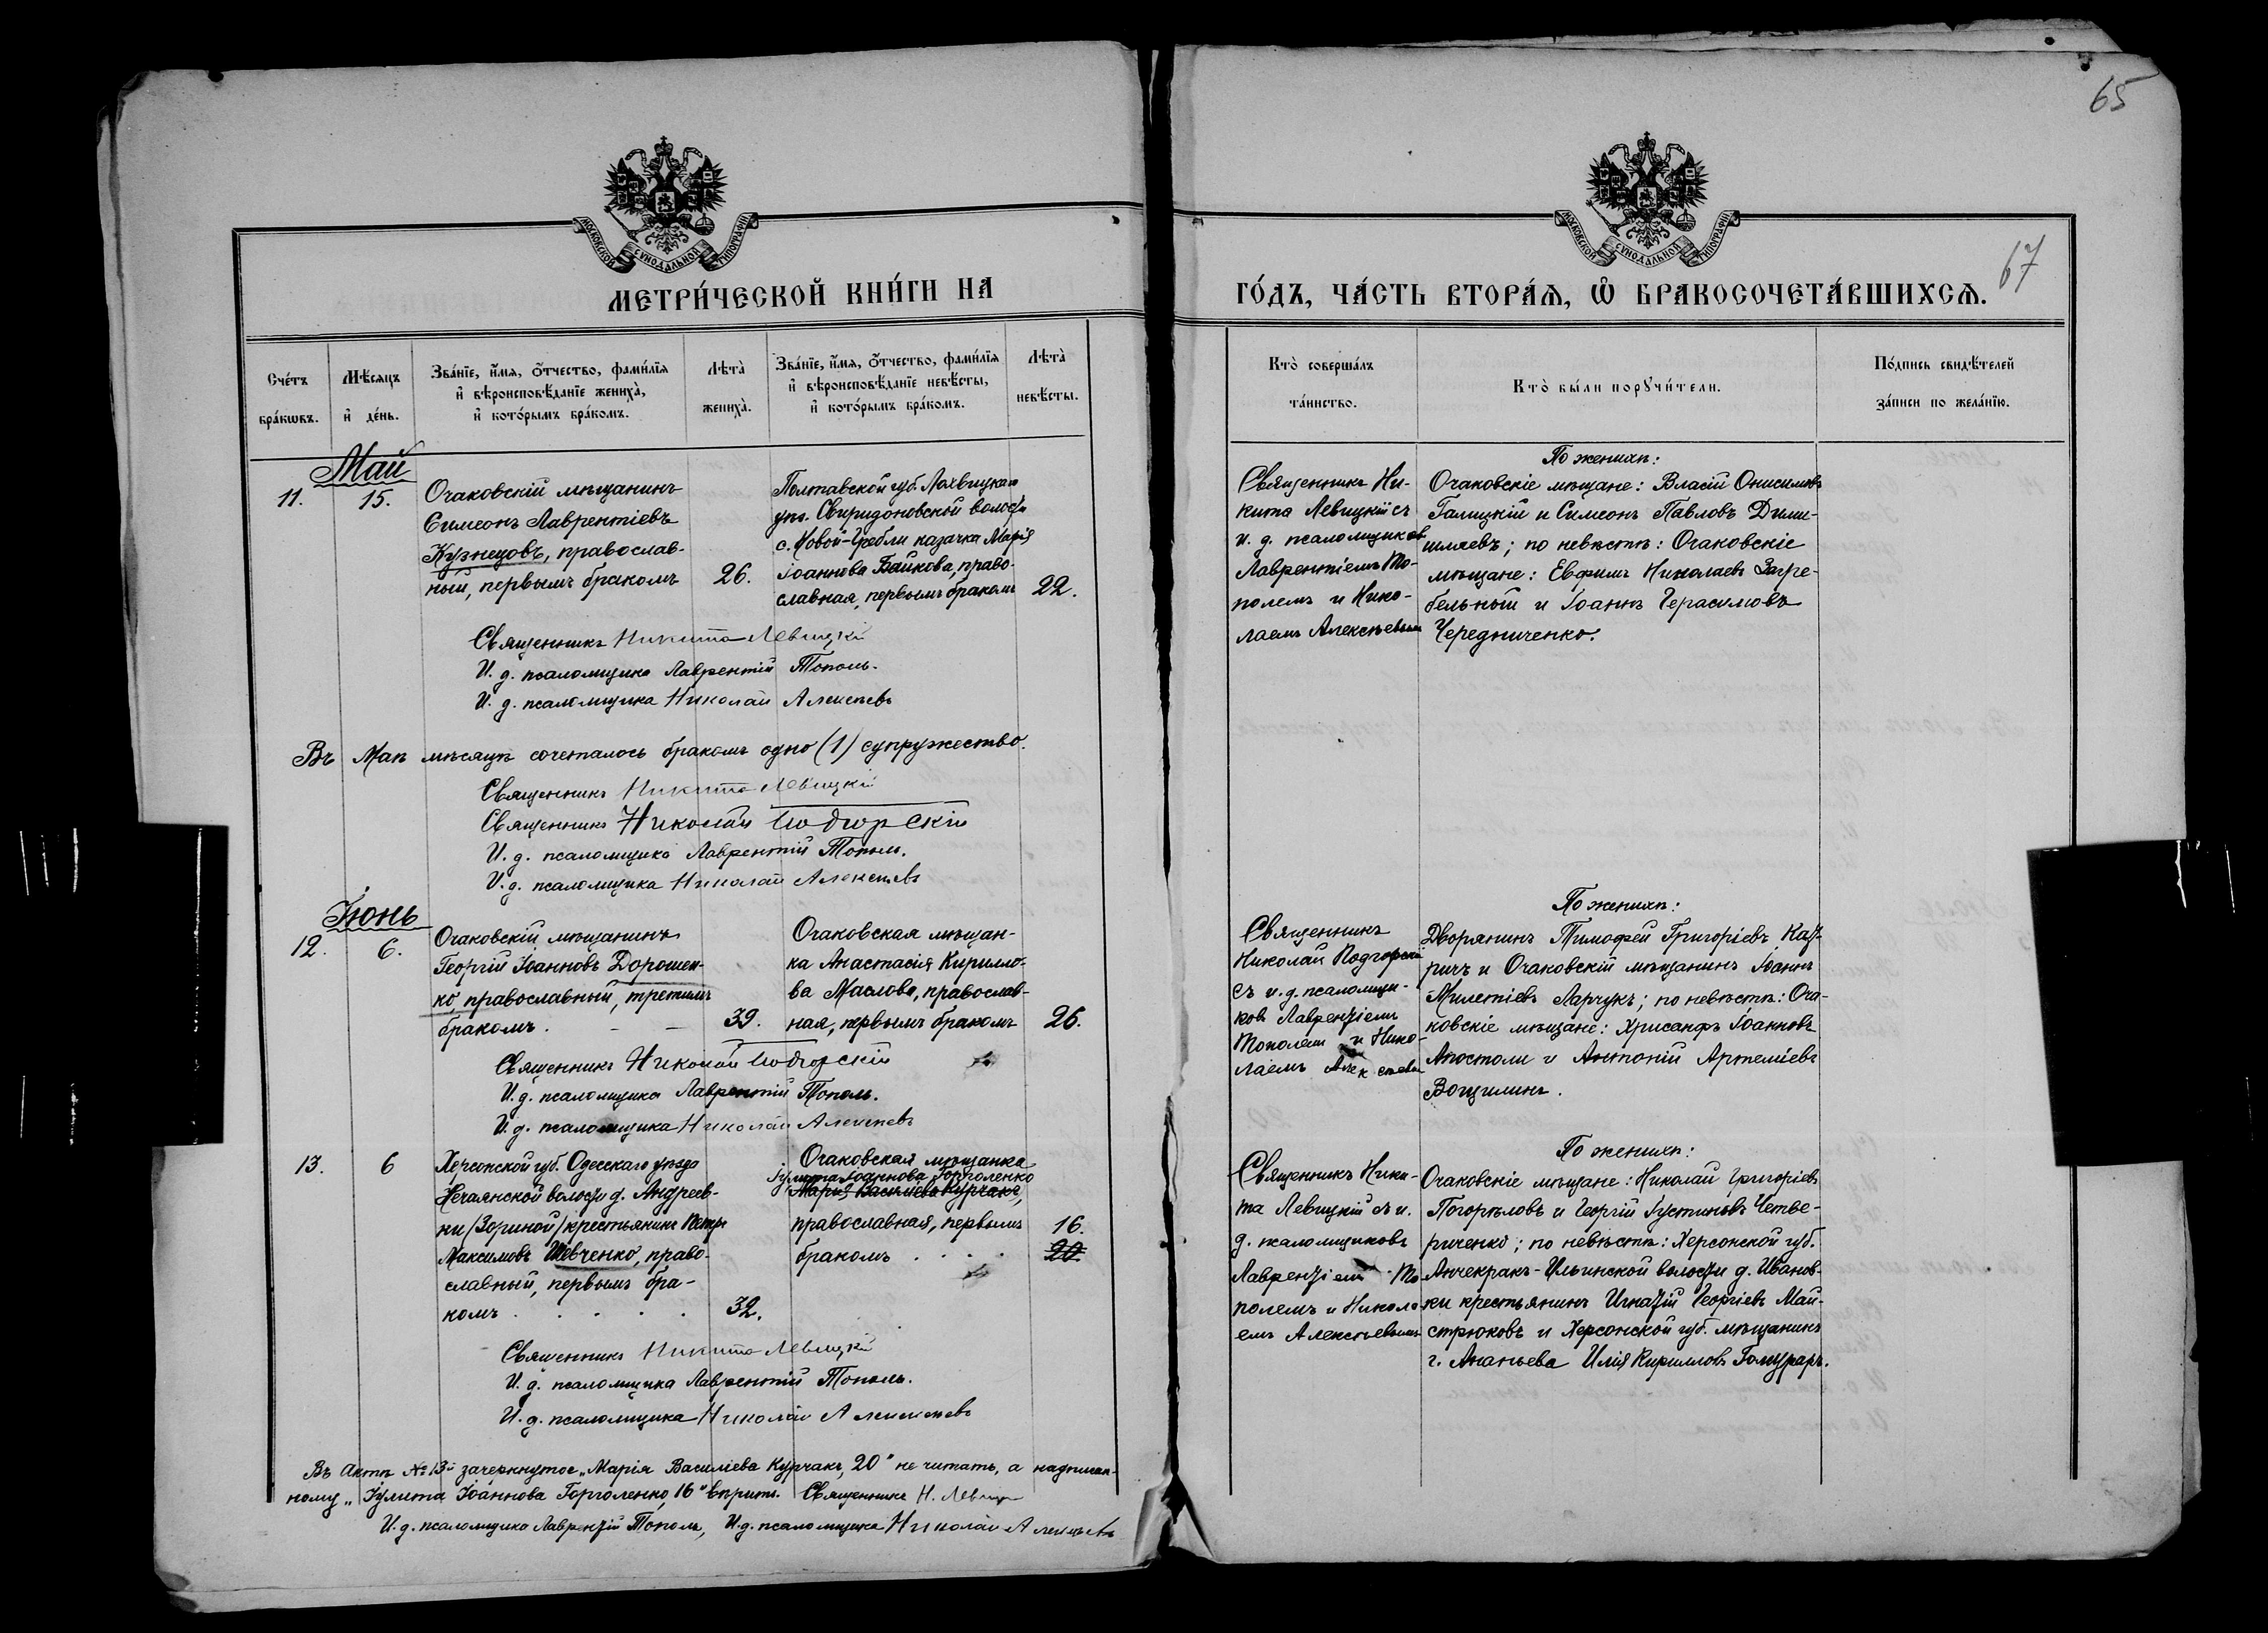 65
67
МОСКОВСКОЙ СѴНОДАЛЬНОЙ ТИПОГРАФІИ
МОСКОВСКОЙ СѴНОДАЛЬНОЙ ТИПОГРАФІИ
МЕТРИ́ЧЕСКОЙ КНИ́ГИ НА
ГО́ДЪ, ЧА́СТЬ ВТОРА́Я, Ѡ҆ БРАКОСОЧЕТА́ВШИХСЯ.
Сче́тъ
бра́кѡвъ.
Мѣ́сяцъ
и҆ де́нь.
Зва́нїе, и҆́мя, ѻ҆́тчество, фами́лїя
и҆ вѣроисповѣ́данїе жениха̀,
и҆ кото́рымъ бра́комъ.
Лѣта̀
жениха̀.
Зва́нїе, и҆́мя, ѻ҆́тчество, фами́лїя
и҆ вѣроисповѣ́данїе невѣ́сты,
и҆ кото́рымъ бра́комъ.
Лѣта̀
невѣ́сты.
Кто̀ соверша́лъ
та́инство.
Кто̀ бы́ли порꙋчи́тели.
По́дпись свидѣ́телей
за́писи по жела́нїю.
Май
11.
15.
Очаковскій мѣщанинъ
Симеонъ Лаврентіевъ
Кузнецовъ, православ-
ный, первымъ бракомъ
26.
Полтавской губ. Лохвицкаго
уѣз. Свиридоновской волости
с. Новой-Гребли казачка Марія
Іоаннова Байкова, право-
славная, первымъ бракомъ
22.
Священникъ Ни-
кита Левицкій съ
и. д. псаломщиковъ
Лаврентіемъ То-
полемъ и Нико-
лаемъ Алексѣевымъ
По женихѣ:
Очаковскіе мѣщане: Власій Онисимовъ
Галицкій и Симеонъ Павловъ Дими-
шляевъ; по невѣстѣ: Очаковскіе
мѣщане: Евфимъ Николаевъ Загре-
бельный и Іоаннъ Герасимовъ
Чередниченко.
Священникъ Никита Левицкій
И. д. псаломщика Лаврентій Тополь.
И. д. псаломщика Николай Алексѣевъ
Въ Маѣ мѣсяцѣ сочеталось бракомъ одно (1) супружество.
Священникъ Никита Левицкій
Священникъ Николай Подгорскій
И. д. псаломщика Лаврентій Тополь.
И. д. псаломщика Николай Алексѣевъ
Іюнь
12.
6.
Очаковскій мѣщанинъ
Георгій Іоанновъ Дорошен-
ко, православный, третимъ
бракомъ. – –
39.
Очаковская мѣщан-
ка Анастасія Кирилло-
ва Маслова, православ-
ная, первымъ бракомъ
26.
Священникъ
Николай Подгорскій
съ и. д. псаломщи-
ковъ Лаврентіемъ
Тополемъ и Нико-
лаемъ Алексѣевымъ
По женихѣ:
Дворянинъ Тимофей Григоріевъ
и Очаковскій мѣщанинъ Іоаннъ
Милетіевъ Ларчукъ; по невѣстѣ: Оча-
ковскіе мѣщане: Хрисанфъ Іоанновъ
Апостоли и Антоній Артеміевъ
Вощилинъ.
Священникъ Николай Подгорскій
И. д. псаломщика Лаврентій Тополь.
И. д. псаломщика Николай Алексѣевъ
13.
6
Херсонской губ. Одесскаго уѣзда
Нечаянской волости д. Андреев-
ки /Зориной/ крестьянинъ Петръ
Максимовъ Шевченко, право-
славный, первымъ бра-
комъ . . . . .
32.
Очаковская мѣщанка
Іулита Іоаннова Горголенко
Марія Василіева Курчакъ,
православная, первымъ
бракомъ . . . .
16.
20.
Священникъ Ники-
та Левицкій съ и.
д. псаломщиковъ
Лаврентіемъ То-
полемъ и Никола-
емъ Алексѣевымъ
По женихѣ:
Очаковскіе мѣщане: Николай Григоріевъ
Погорѣловъ и Георгій Іустиновъ Четве-
риченко; по невѣстѣ: Херсонской губ.
Анчекракъ-Ильинской волости д. Иванов-
ки крестьянинъ Игнатій Георгіевъ Май-
стрюковъ и Херсонской губ. мѣщанинъ
г. Ананьева Илія Кирилловъ
Священникъ Никита Левицкій
И. д. псаломщика Лаврентій Тополь.
И. д. псаломщика Николай Алексѣевъ
Въ Актѣ № 13й зачеркнутое „Марія Василіева Курчакъ, 20" не читать, а надписан-
ному „Іулита Іоаннова Горголенко, 16" вѣрить. Священникъ Н. Левицкій
И. д. псаломщика Лаврентій Тополь, И. д. псаломщика Николай Алексѣевъ